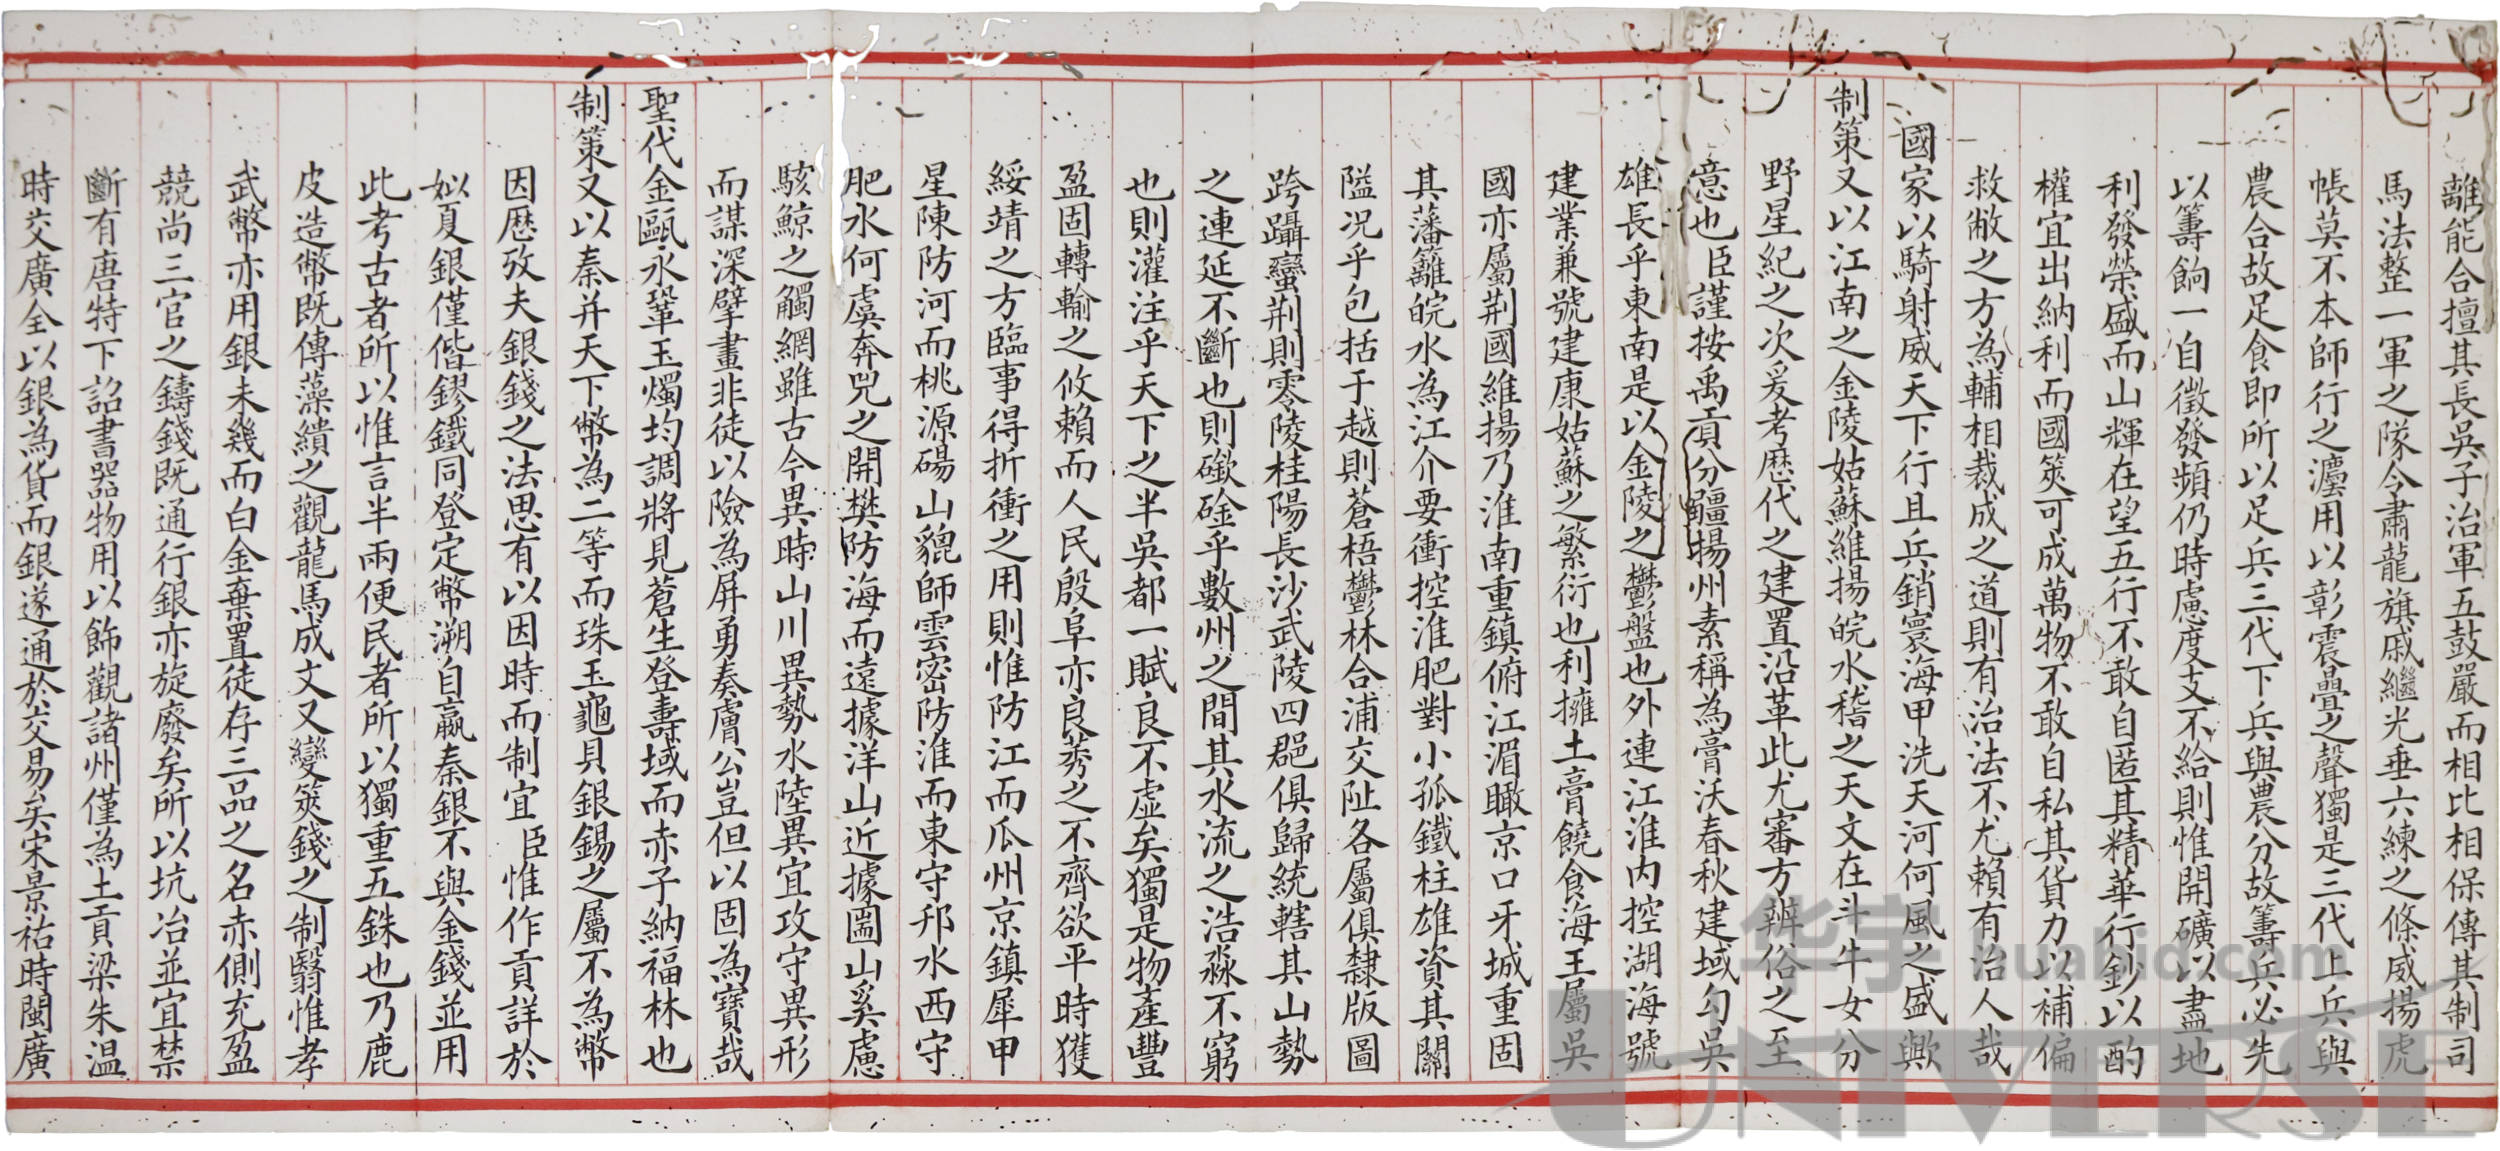 離能合擅其長吳子治軍五鼓嚴而相比相保傳其制司
馬法整一軍之隊今肅龍旗戚繼光垂六練之條威揚虎
帳莫不本師行之灋用以彰震疊之聲獨是三代上兵與
農合故足食即所以足兵三代下兵與農分故籌兵必先
以籌餉一自徵發頻仍時慮度支不給則惟開礦以盡地
利發榮盛而山輝在望五行不敢自匿其精華行鈔以酌
權宜出納利而國筴可成萬物不敢自私其貨力以補偏
救敝之方為輔相裁成之道則有治法不尤賴有治人哉
國家以騎射威天下行且兵銷寰海甲洗天河何風之盛歟
制策又以江南之金陵姑蘇維揚皖水稽之天文在斗牛女分
野星紀之次爰考歷代之建置沿革此尤審方辨俗之至
意也臣謹按禹貢分疆揚州素稱為膏沃春秋建域勾吳
雄長乎東南是以金陵之鬱盤也外連江淮內控湖海號
建業兼號建康姑蘇之繁衍也利擁土膏饒食海王屬吳
國亦屬荊國維揚乃淮南重鎮俯江湄瞰京口牙城重固
其藩籬皖水為江介要衝控淮肥對小孤鐵柱雄資其關
隘況乎包括于越則蒼梧鬱林合浦交阯各屬俱隸版圖
跨躡蠻荊則零陵桂陽長沙武陵四郡俱歸統轄其山勢
之連延不斷也則礮磕乎數州之間其水流之浩淼不窮
也則灌注乎天下之半吳都一賦良不虛矣獨是物產豐
盈固轉輸之攸賴而人民殷阜亦良莠之不齊欲平時獲
綏靖之方臨事得折衝之用則惟防江而瓜州京鎮犀甲
星陳防河而桃源碭山貔師雲密防淮而東守邗水西守
肥水何虞奔兕之開樊防海而遠據洋山近據圌山奚慮
駭鯨之觸網雖古今異時山川異勢水陸異宜攻守異形
而謀深擘畫非徒以險為屏勇奏膚公豈但以固為寶哉
聖代金甌永鞏玉燭均調將見蒼生登壽域而赤子納福林也
制策又以秦并天下幣為二等而珠玉龜貝銀錫之屬不為幣
因歷攷夫銀錢之法思有以因時而制宜臣惟作貢詳於
姒夏銀僅偕鏐鐵同登定幣溯自嬴秦銀不與金錢並用
此考古者所以惟言半兩便民者所以獨重五銖也乃鹿
皮造幣既傳藻繢之觀龍馬成文又變筴錢之制翳惟孝
武幣亦用銀未幾而白金棄置徒存三品之名赤側充盈
競尚三官之鑄錢既通行銀亦旋廢矣所以坑冶並宜禁
斷有唐特下詔書器物用以飾觀諸州僅為土貢梁朱溫
時交廣全以銀為貨而銀遂通於交易矣宋景祐時閩廣
华宇 huabid.com
UNIVERSE